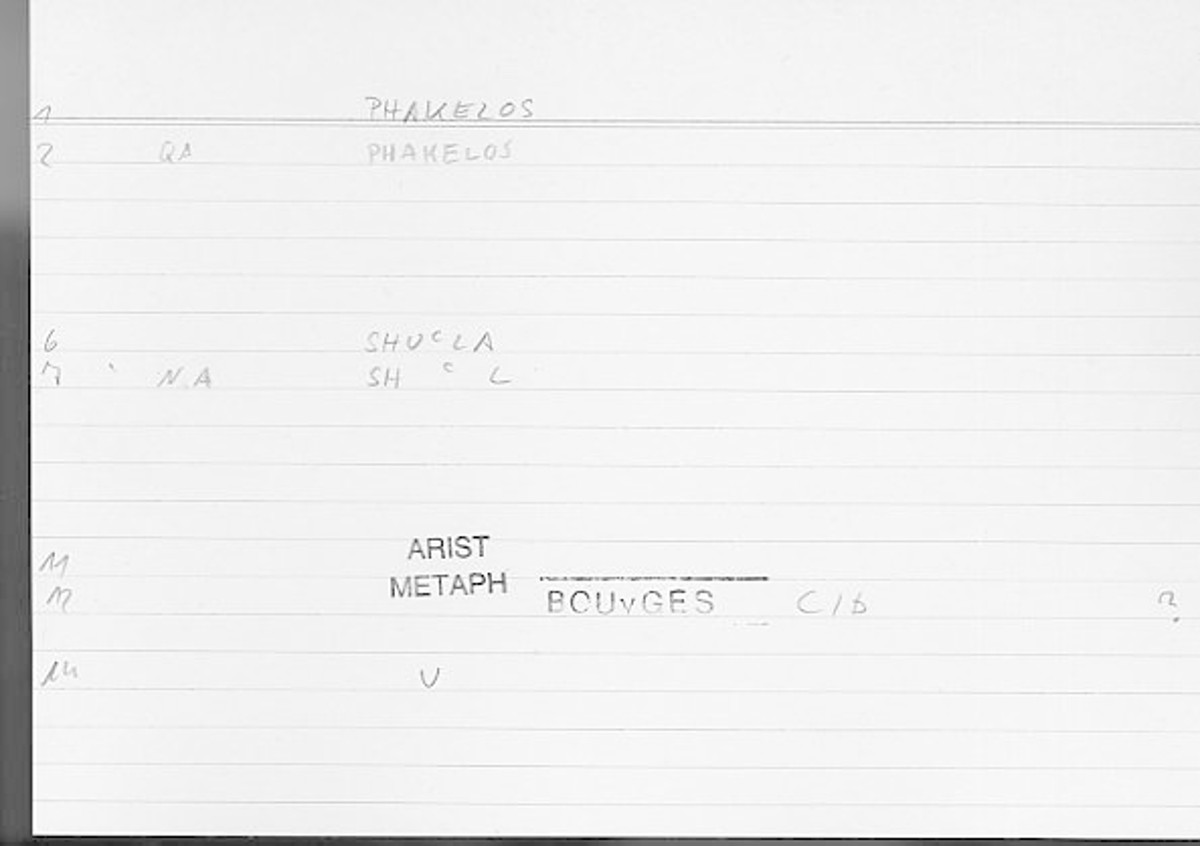 1 PHAKELOS
2 QA PHAKELOS
6 SHUᶜLA
7 NA SH ᶜ L
11 ARIST
12 METAPH BOUyGES C/b ?
14 U